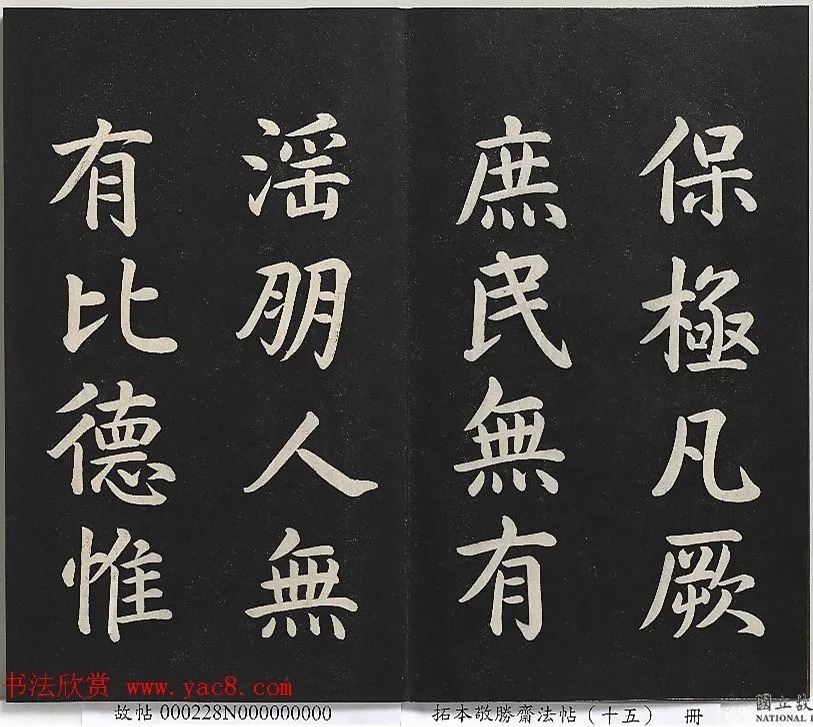 保極凡厥
庶民無有
淫朋人無
有比德惟
书法欣赏 www.yac8.com
故帖 000228N000000000
拓本敬勝齋法帖（十五） 冊
國立故
NATIONAL